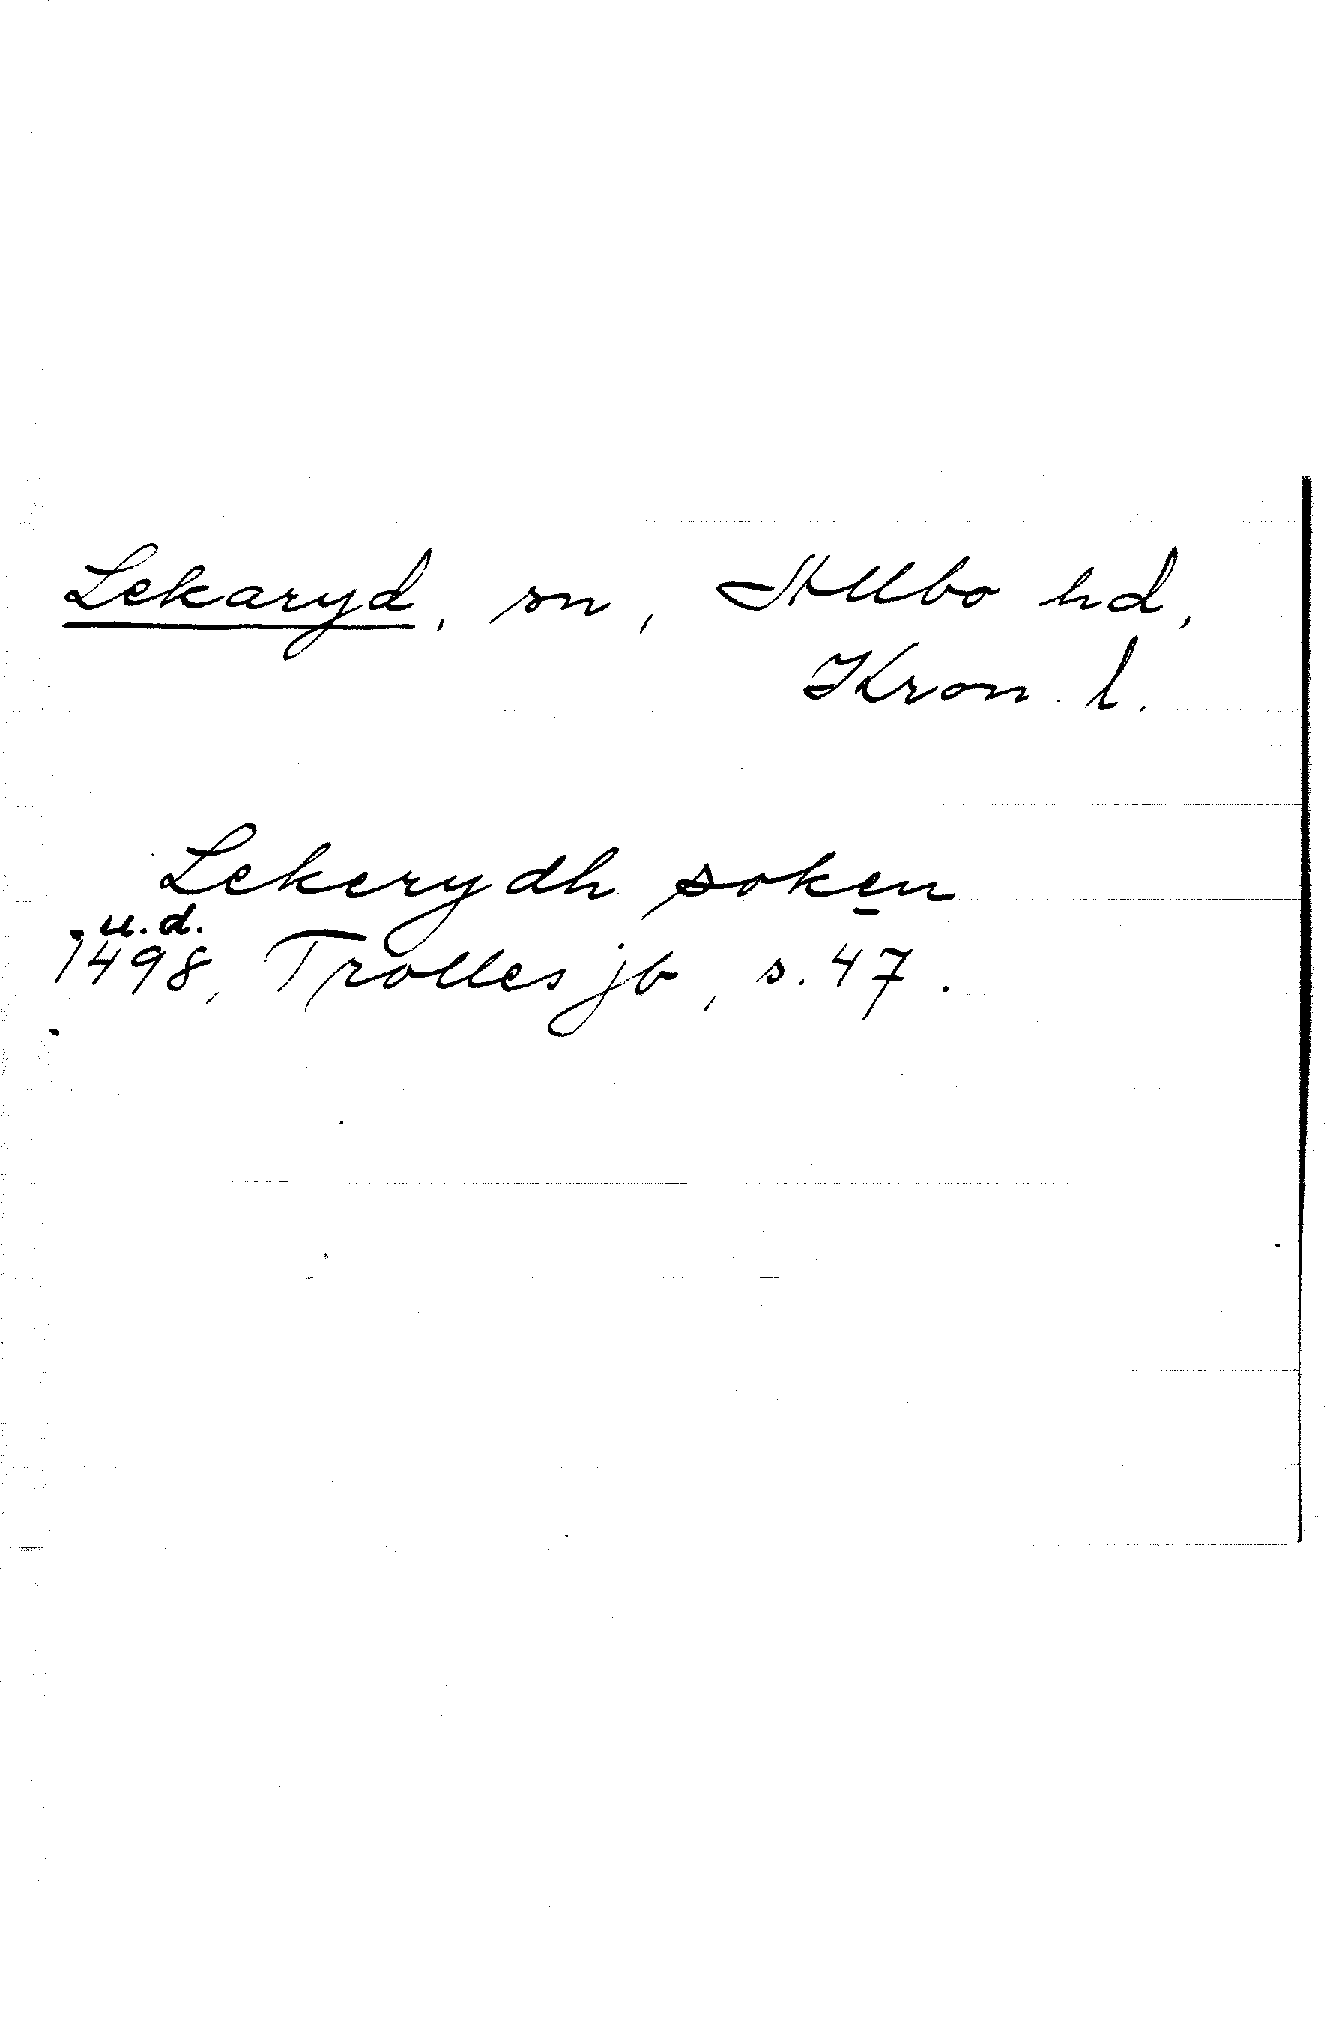 Lekaryd, sn, Allbo hd,
Kron. l.
Lekerydh soken
u.d.
1498, Trolles jb, s. 47.